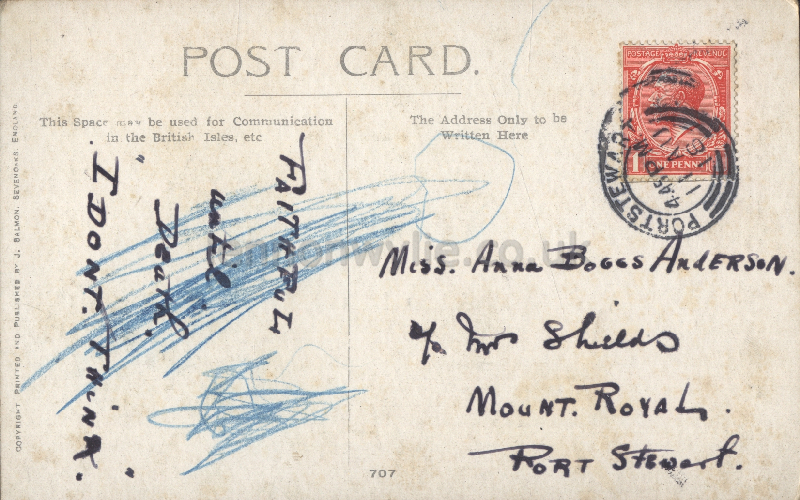 POST CARD.
This Space may be used for Communication
in the British Isles, etc
The Address Only to be
Written Here
FAITHFUL
until
Death.
"I DONT. THINK."
Miss. Anna Boggs Anderson.
c/o Mrs Shields
Mount. Royal.
Port Stewart.
POSTAGE REVENUE
1 ONE PENNY
PORTSTEWART
COPYRIGHT PRINTED AND PUBLISHED BY J. SALMON, SEVENOAKS, ENGLAND
707
wylie.co.uk